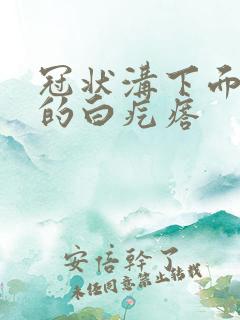 冠状溝下面
的白疙瘩
安倍幹了
未经同意禁止转载